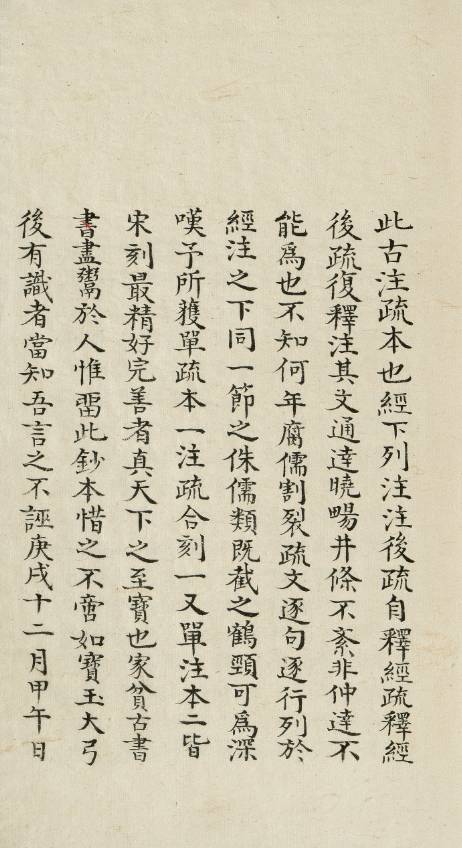 此古注疏本也經下列注注後疏自釋經疏釋經
後疏復釋注其文通達曉暢井條不紊非仲達不
能為也不知何年腐儒割裂疏文逐句逐行列於
經注之下同一節之侏儒類既截之鶴頸可為深
嘆予所獲單疏本一注疏合刻一又單注本二皆
宋刻最精好完善者真天下之至寶也家貧古書
書盡鬻於人惟畱此鈔本惜之不啻如寶玉大弓
後有識者當知吾言之不誣庚戌十二月甲午日